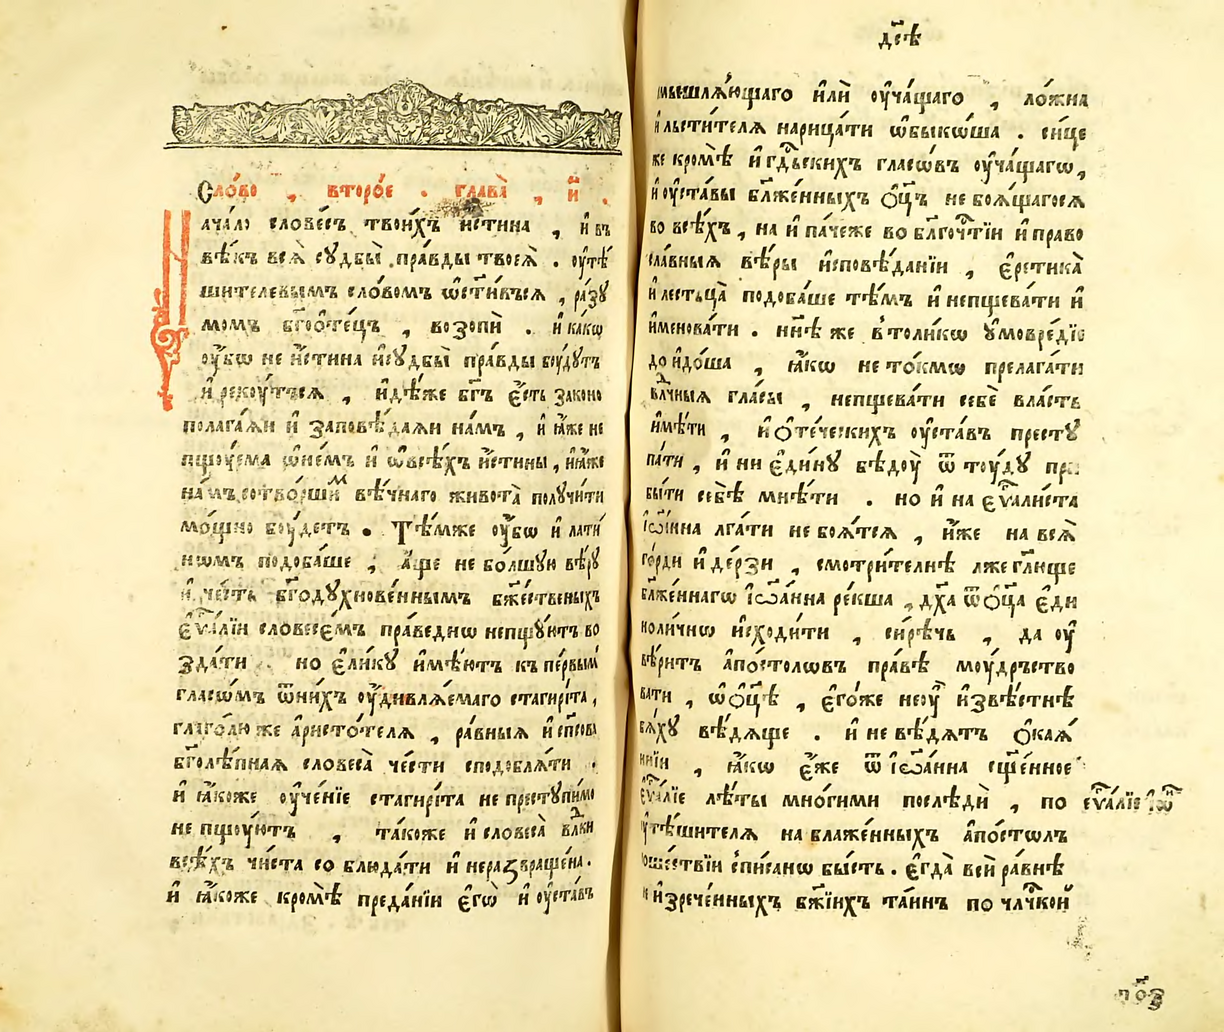 Сло́во , второ́е . глава̀ , и҃ .
Нача́ло слове́съ твои́хъ и҆́стина , и҆ въ
вѣ́къ всѧ̀ сꙋдбы̀ пра́вды твоеѧ̀ . ᲂу҆тѣ́
шителевымъ сло́вомъ ѡ҆ст҃и́въсѧ , ра́зꙋ
момъ бг҃оѻ҆те́цъ , возопѝ . и҆ ка́кѡ
ᲂу҆́бѡ не и҆́стина и҆ сꙋдбы̀ пра́вды бꙋ́дꙋтъ
и҆ рекꙋ́тсѧ , и҆дѣ́же бг҃ъ є҆́сть законо
полага́ѧи и҆ заповѣ́даѧи на́мъ , и҆ ꙗ҆́же не
пщꙋ́ема ѡ҆ не́мъ и҆ ѡ҆ всѣ́хъ и҆́стины , и҆ ꙗ҆́же
на́мъ сотво́ршимъ вѣ́чнаго живота̀ полꙋчи́ти
мо́щно бꙋ́детъ . Тѣ́мже ᲂу҆́бѡ и҆ лати́
нѡмъ подоба́ше , а҆́ще не бо́лшꙋи вѣ́рꙋ
и҆ че́сть бг҃одꙋхнове́ннымъ бж҃е́ственыхъ
є҆ѵⷢ҇а́лїи словесе́мъ пра́веднѡ непщꙋ́ютъ во
зда́ти . но є҆ли́кꙋ и҆мѣ́ютъ къ пе́рвым
гласѡ́мъ ѿ ни́хъ ᲂу҆дивлѧ́емаго стагирі́та ,
глаго́лю же а҆ристо́телѧ , ра́вныѧ и҆ сп҃со́ва
бг҃олѣ́пнаѧ словеса̀ че́сти сподоблѧ́ти .
и҆ ꙗ҆́коже ᲂу҆че́нїе стагирі́та не престꙋ́пимо
не пщꙋ́ютъ , та́коже и҆ словеса̀ влⷣки
всѣ́хъ чи́ста соблюда́ти и҆ неразвраще́на .
и҆ ꙗ҆́коже кромѣ̀ преда́нїи є҆гѡ̀ и҆ ᲂу҆ста́въ
дс҃ѣ
мышлѧ́ющаго и҆лѝ ᲂу҆ча́щаго , ло́жна
и҆ льсти́телѧ нарица́ти ѡ҆быко́ша . си́це
же кромѣ̀ и҆ гдⷭ҇ьскихъ гласѡ́въ ᲂу҆ча́щагѡ ,
и҆ ᲂу҆ста́вы бл҃же́нныхъ ѻ҆ц҃ъ не боѧ́щагосѧ
во всѣ́хъ , на и҆ па́чеже во бл҃гоч҃тїи и҆ право
сла́вныѧ вѣ́ры и҆сповѣ́данїи , є҆ретика̀
и҆ лестьца̀ подоба́ше тѣ́мъ и҆ непщева́ти и҆
и҆менова́ти . нн҃ѣ же в̾толи́кѡ ᲂумовре́дїе
до и҆до́ша , ꙗ҆́кѡ не то́кмѡ прелага́ти
влⷣчныѧ гла́сы , непщева́ти себѐ вла́сть
и҆мѣ́ти , и҆ ѻ҆те́ческихъ ᲂу҆ста́въ престꙋ
па́ти , и҆ ни є҆ди́нꙋ бѣ́дꙋ ѿ тꙋ́дꙋ при
бы́ти себѣ̀ мнѣ́ти . но и҆ на є҆ѵⷢ҇али́ста
і҆ѡа́нна лга́ти не боѧ́тсѧ , и҆́же на всѧ̀
го́рди и҆ де́рзи , смотри́телнѣ лжегл҃юще
бл҃же́ннагѡ і҆ѡа́нна ре́кша , дх҃а ѿ ѻ҆ц҃а є҆ди
ноли́чнѡ и҆сходи́ти , си́рѣчь , да ᲂу҆
вѣ́ритъ а҆по́столѡвъ пра́вѣ мꙋ́дръство
вати , ѡ҆ ѻ҆ц҃ѣ̀ , є҆го́же не ᲂу҆̀ и҆звѣ́стнѣ
бѧ́хꙋ вѣ́дѧще . и҆ не вѣ́дѧтъ ѻ҆каѧ́
ннїи , ꙗ҆́кѡ є҆́же ѿ і҆ѡа́нна сщ҃е́нное
є҆ѵⷢ҇а́лїе лѣ́ты мно́гими послѣдѝ , по
є҆ѵⷢ҇а́лїе і҆ѡ҃
ᲂу҆тѣ́шителѧ на блаже́нныхъ а҆по́столъ
соше́ствїи спи́санѡ бы́сть . є҆гда̀ вси̑ ра́внѣ
и҆зрече́нныхъ бж҃їихъ та́инъ по чл҃чкой
поз̾